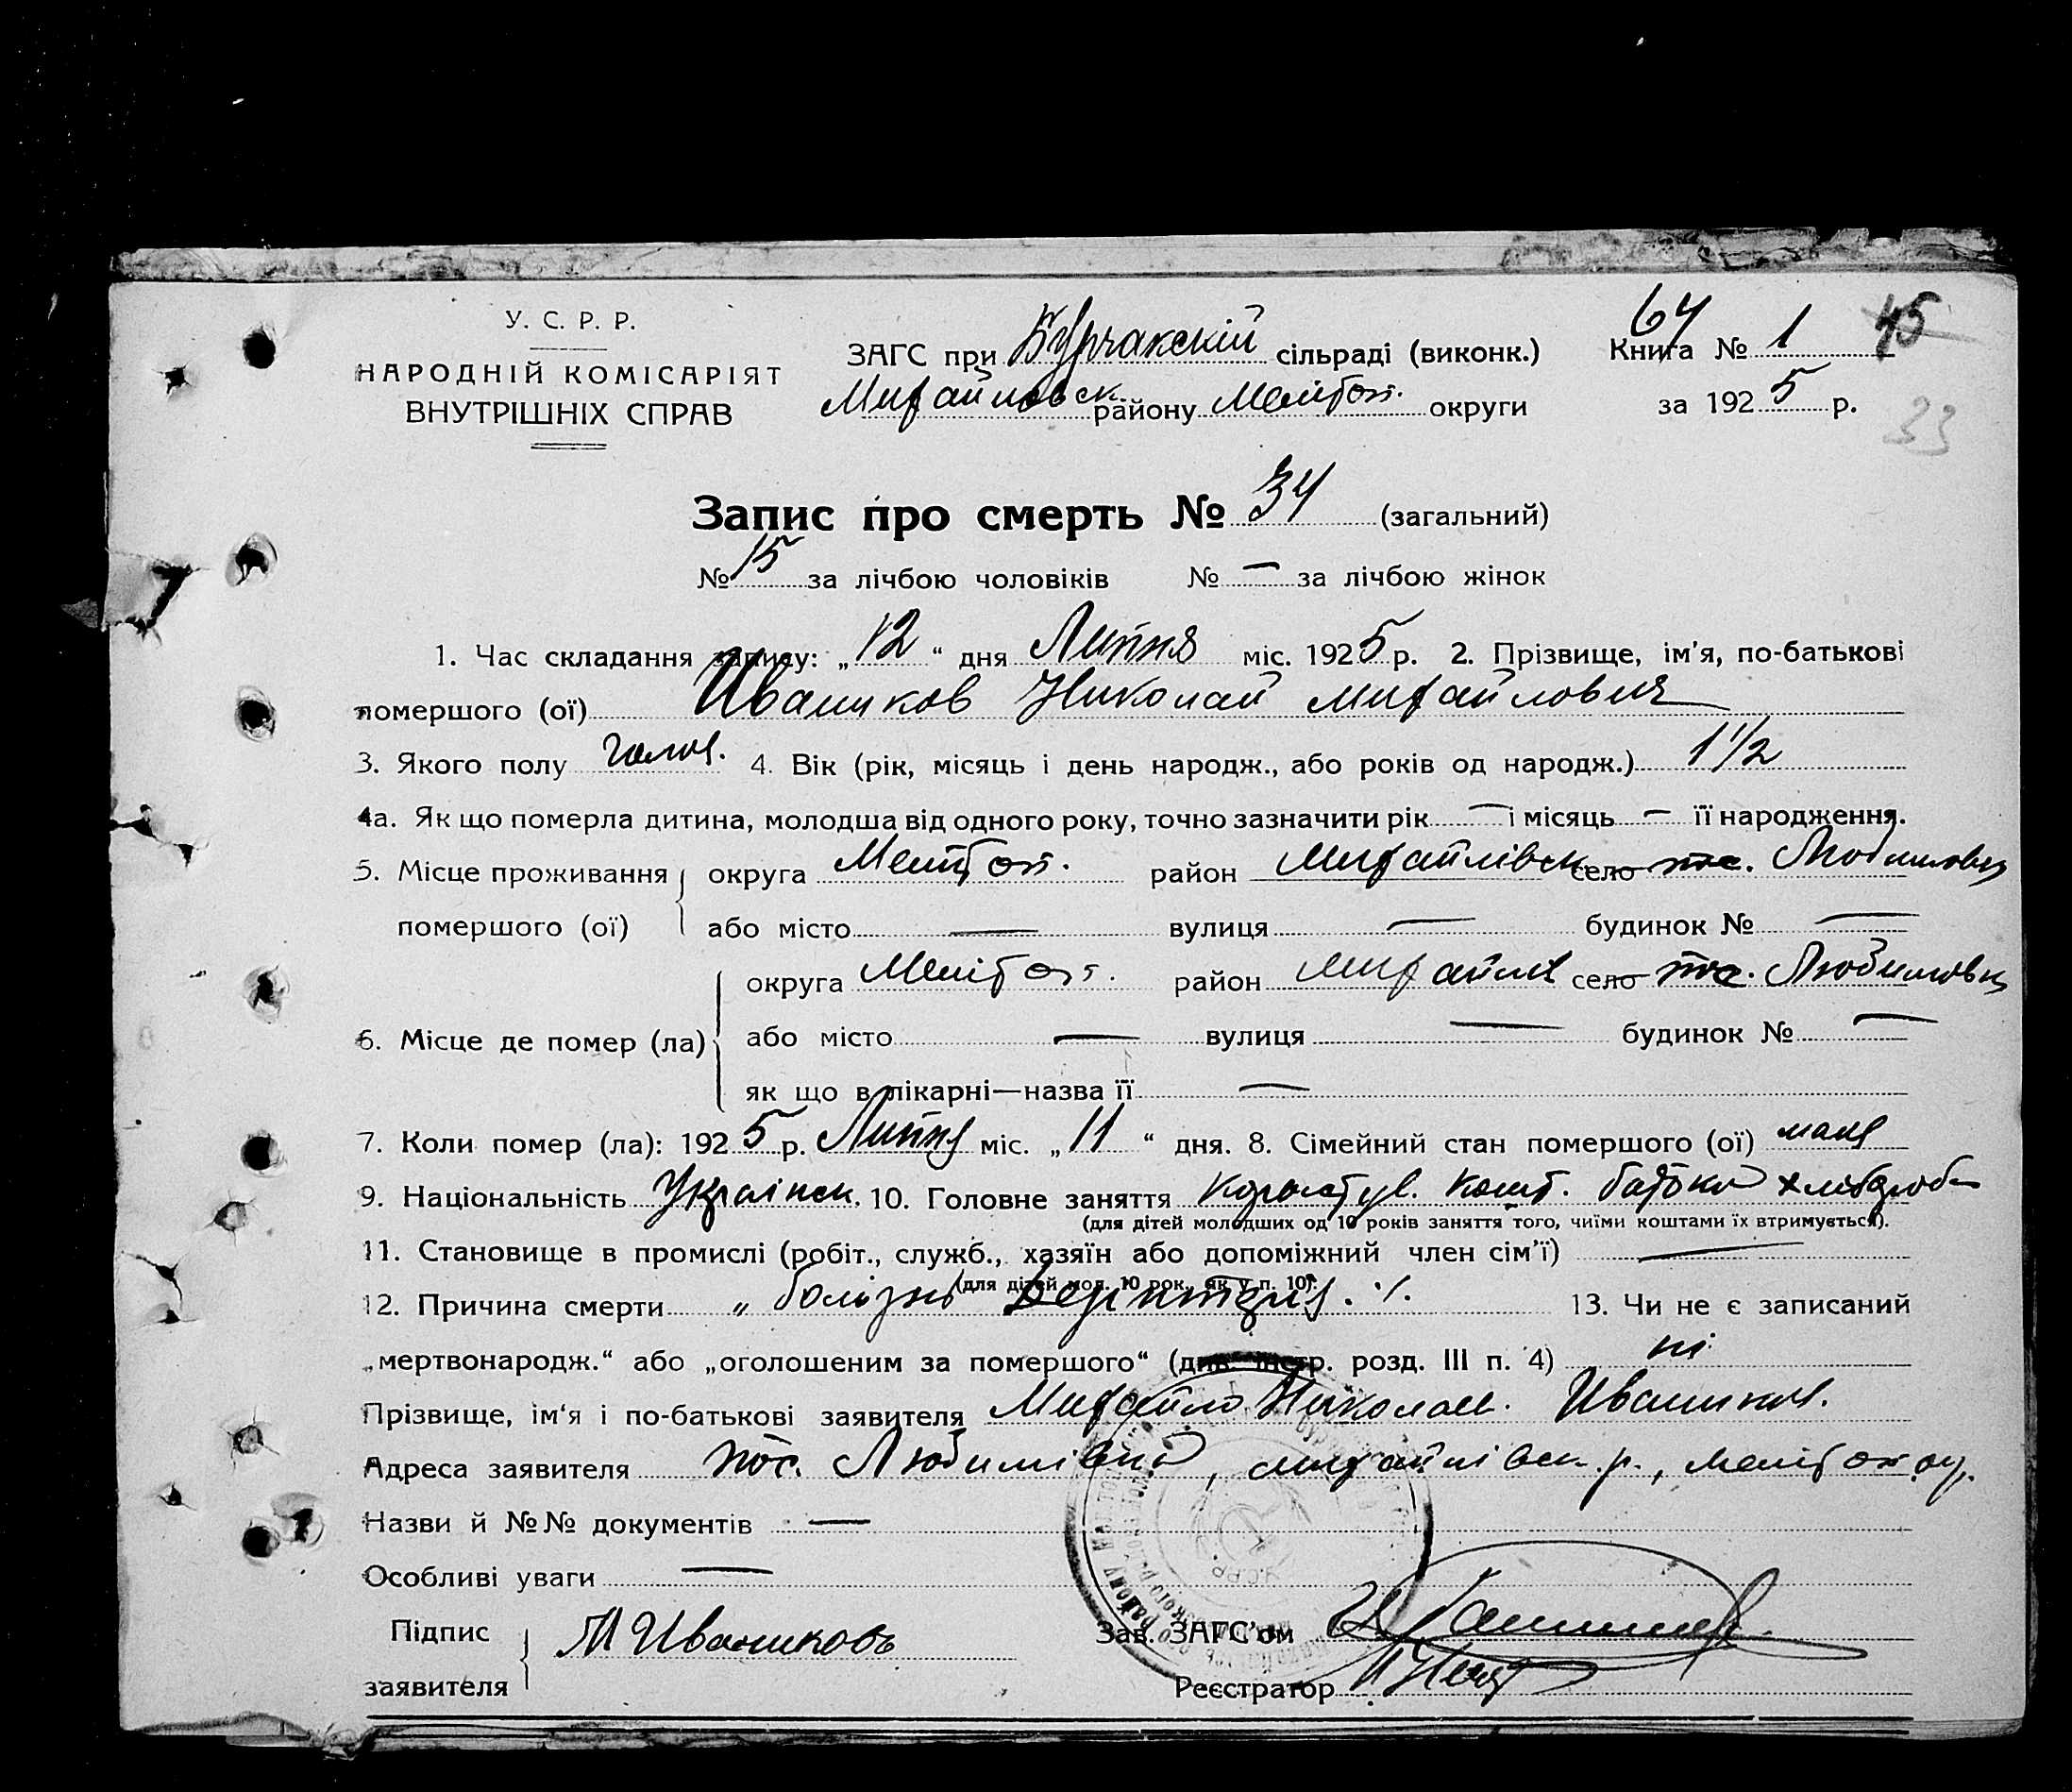 У. С. Р. Р.
НАРОДНІЙ КОМІСАРІЯТ
ВНУТРІШНІХ СПРАВ
ЗАГС при Бурчакскій сільраді (виконк.)
Михайловск. району Меліtoп. округи
64
Книга № 1
45
за 1925 р.
33
Запис про смерть № 34 (загальний)
№ 15 за лічбою чоловіків № — за лічбою жінок
1. Час складання запису: „12“ дня Липня міс. 1925 р. 2. Прізвище, ім'я, по-батькові
помершого (ої) Иваников Николай Михайлович
3. Якого полу чолов. 4. Вік (рік, місяць і день народж., або років од народж.) 1 1/2
4а. Як що померла дитина, молодша від одного року, точно зазначити рік — і місяць — її народження.
5. Місце проживання помершого (ої) округа Меліtoп. район Михайлівск. село пос. Любимовка
або місто — вулиця — будинок № —
6. Місце де помер (ла) округа Меліtoп. район Михайлів село пос. Любимовка
або місто — вулиця — будинок № —
як що в лікарні—назва її —
7. Коли помер (ла): 1925 р. Липня міс. „11“ дня. 8. Сімейний стан помершого (ої)
9. Національність Українск. 10. Головне заняття Користув. кошт. батька хлібороба
(для дітей молодших од 10 років заняття того, чиїми коштами їх втримується).
11. Становище в промислі (робіт., служб., хазяїн або допоміжний член сім'ї) —
(для дітей мол. 10 рок., як у п. 10).
12. Причина смерти „болізнь 13. Чи не є записаний
„мертвонародж.“ або „оголошеним за помершого“ (див. інстр. розд. III п. 4) ні
Прізвище, ім'я і по-батькові заявителя Михайло Николаев. Иваников.
Адреса заявителя пос. Любимівка, михайлівск. р., меліtoп. ок.
Назви й №№ документів —
Особливі уваги —
Підпис заявителя М Иваниковъ
Зав. ЗАГС'ом
Реєстратор